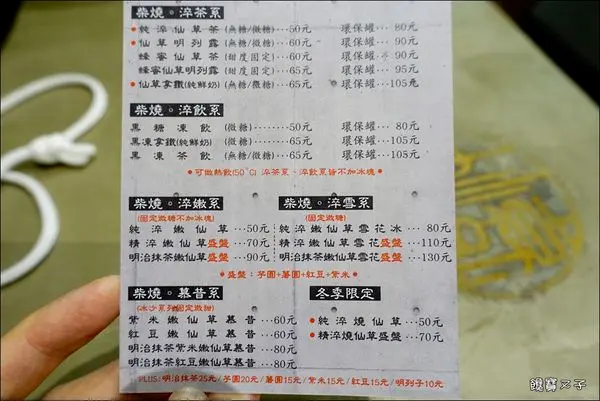 柴燒。淬茶系
●純淬仙草茶(無糖/微糖)…50元 環保罐… 80元
●仙草明列露(無糖/微糖)…60元 環保罐… 90元
蜂蜜仙草茶(甜度固定)…60元 環保罐… 90元
蜂蜜仙草明列露(甜度固定)…65元 環保罐… 95元
●仙草拿鐵(純鮮奶)(無糖/微糖)…65元 環保罐…105元
柴燒。淬飲系
黑糖凍飲(微糖)………50元 環保罐… 80元
黑凍拿鐵(純鮮奶)(微糖)………65元 環保罐…105元
黑凍茶飲(無糖/微糖)………65元 環保罐…105元
●可做熱飲(50°C) 淬茶系、淬飲系皆不加冰塊●
柴燒。淬嫩系 柴燒。淬雪系
(固定微糖不加冰塊) (固定微糖)
純淬嫩仙草…50元 純淬嫩仙草雪花冰… 80元
精淬嫩仙草盛盤…70元 精淬嫩仙草雪花盛盤…110元
明治抹茶嫩仙草盛盤…90元 明治抹茶嫩仙草雪花盛盤…130元
●盛盤：芋圓+薯圓+紅豆+紫米●
柴燒。慕昔系 冬季限定
(冰沙系列固定微糖)
紫米嫩仙草慕昔…60元 ●純淬燒仙草…50元
紅豆嫩仙草慕昔…60元 ●精淬燒仙草盛盤…70元
明治抹茶紫米嫩仙草慕昔…80元
明治抹茶紅豆嫩仙草慕昔…80元
PLUS:明治抹茶25元/芋圓20元/薯圓15元/紫米15元/紅豆15元/明列子10元